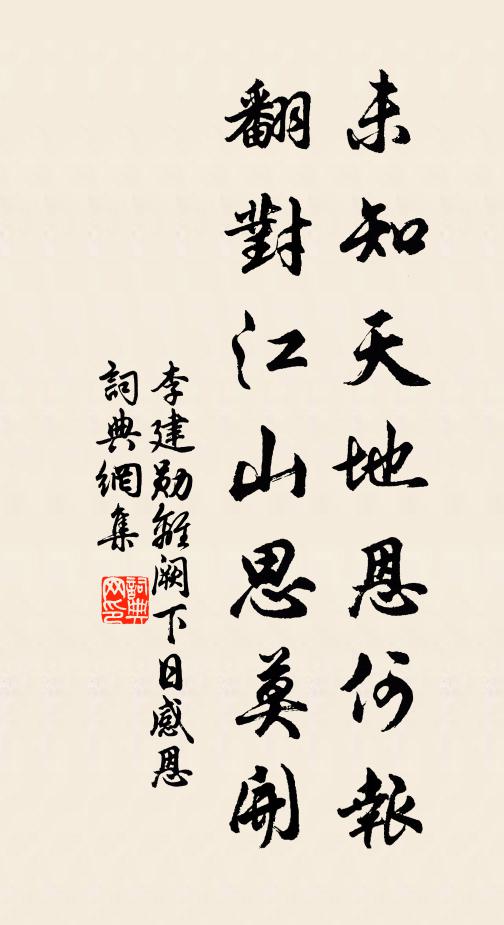 未知天地恩何報
翻對江山思莫開
李建勛離闕下日感恩
詞典網集